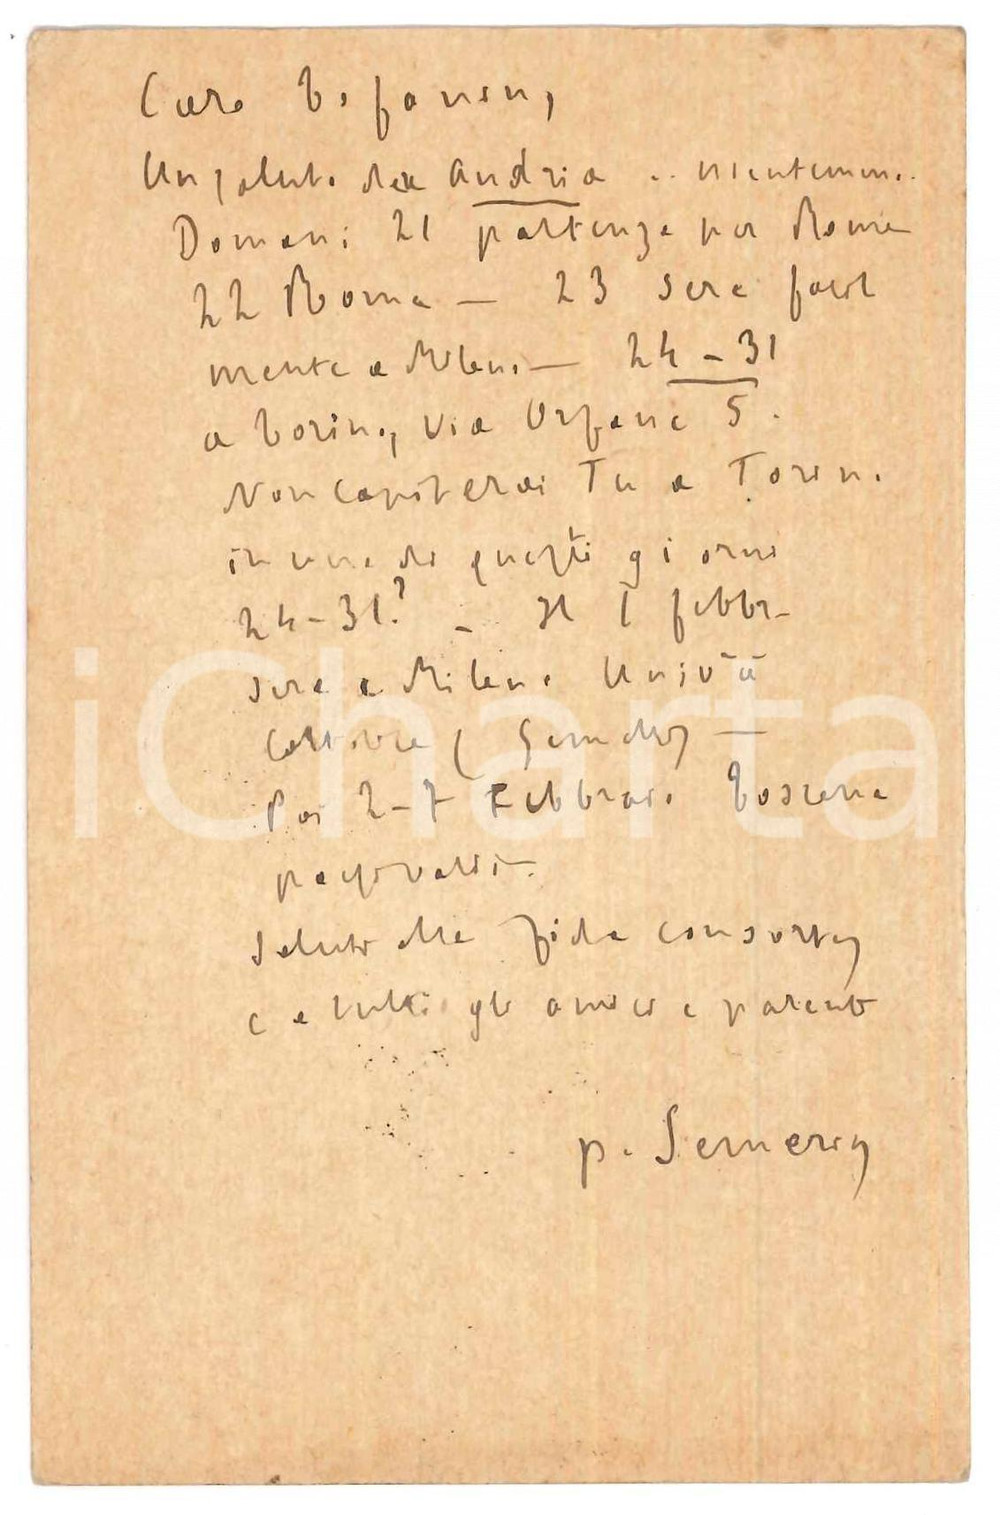 Caro Bofanson,
Un saluto da Andria
Domani 21 partenza per Roma
22 Roma — 23 sera facil
mente a Milano — 24 - 31
a Torino, Via Orfane 5.
Non capiterai Tu a Torino
in uno di questi giorni
24-31? - Il 1 febbr-
sera a Milano Univ-à
Cattolica (Gemelli) —
Poi 2-7 Febbraio Toscana
Saluti alla fida consorte,
e a tutti gli amici e parenti
p. Semeria
iCharta